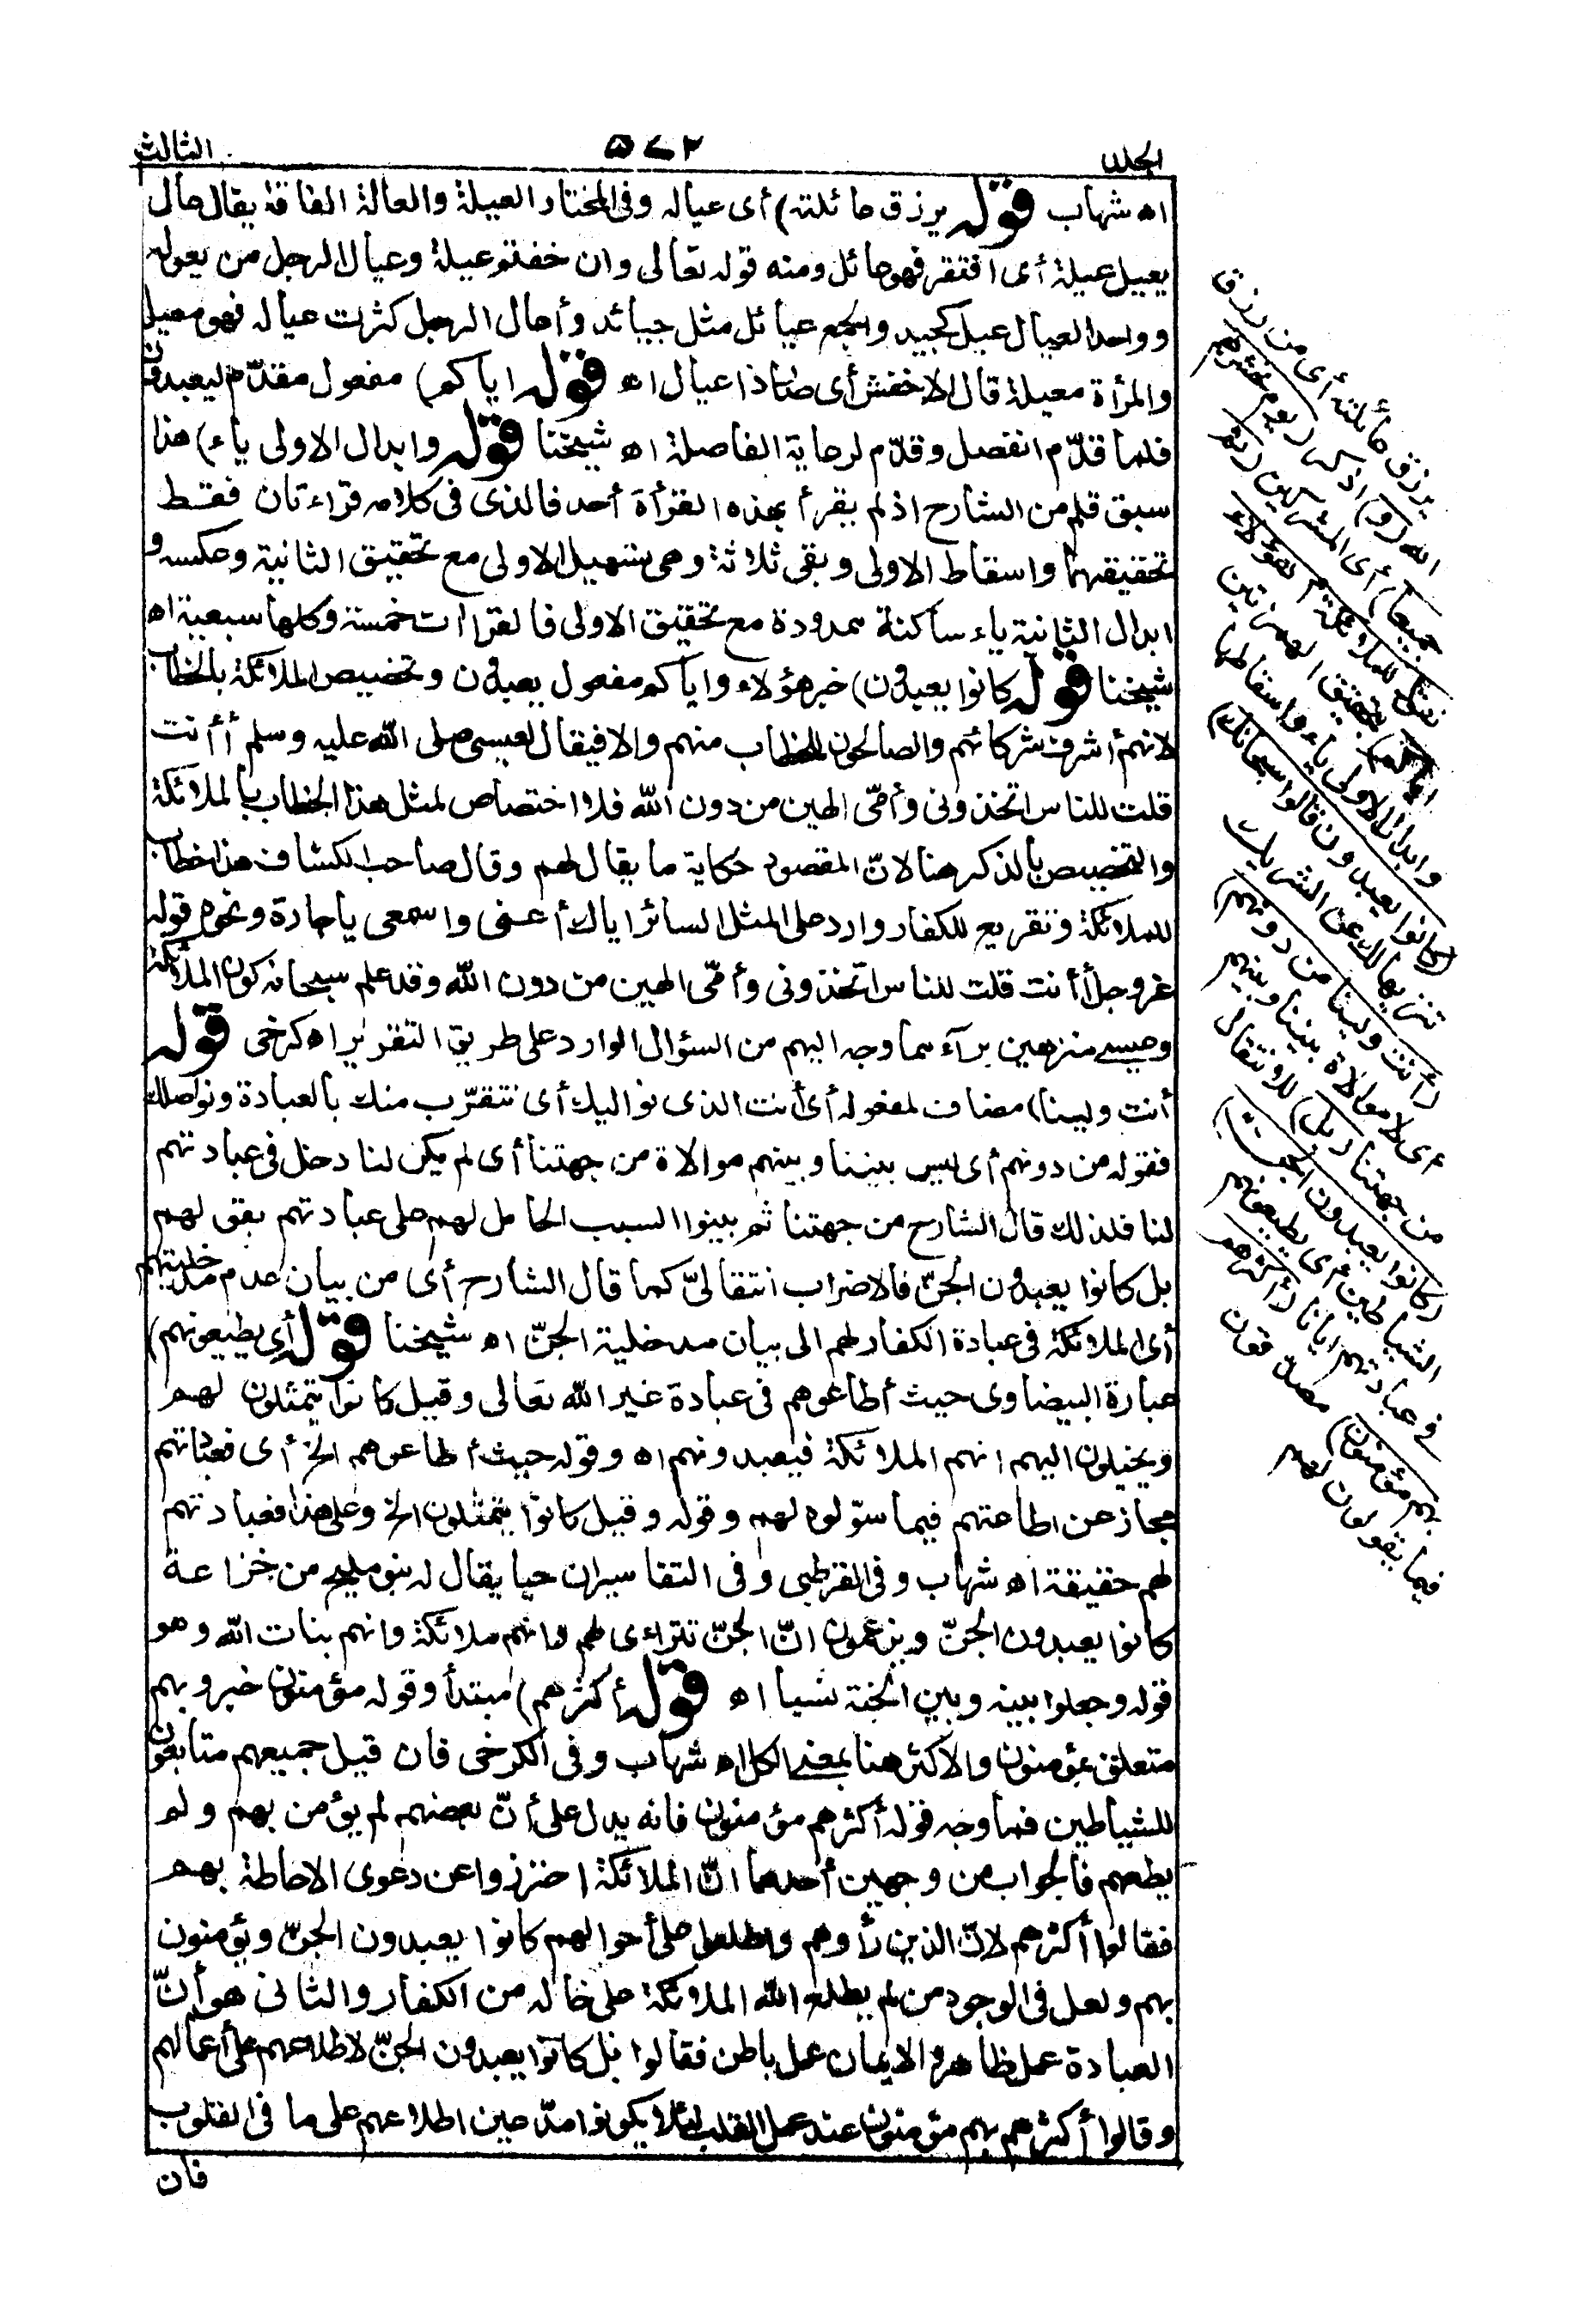 الجلد
٥٧٢
الثالث
اه شهاب قوله يرزق عائلته) أى عياله وفى المختار العيلة والعالة الفاقة يقال عال
يعيل عيلة أى افتقر فهو عائل ومنه قوله تعالى وان خفتم عيلة وعيال الرجل من يعوله
وواحد العيال عيل كجيد والجمع عيائل مثل جيائد وأعال الرجل كثرت عياله فهو معيل
والمرأة معيلة قال الاخفش أى صار ذا عيال اه قوله اياكم) مفعول مقدّم ليعبدون
فلما قدّم انفصل وقدّم لرعاية الفاصلة اه شيخنا قوله وابدال الاولى ياء) هذا
سبق قلم من الشارح اذ لم يقرأ بهذه القرأة أحد فالذى فى كلامه قراءتان فقط
تحقيقهما واسقاط الاولى وبقى ثلاثة وهى تسهيل الاولى مع تحقيق الثانية وعكسه و
ابدال الثانية ياء ساكنة ممدودة مع تحقيق الاولى فالقراات خمسة وكلها سبعية اه
شيخنا قوله كانوا يعبدون) خبر هؤلاء واياكم مفعول يعبدون وتخصيص الملائكة بالخطاب
لانهم أشرف شركائهم والصالحون للخطاب منهم والا فيقال لعيسى صلى الله عليه وسلم أأنت
قلت للناس اتخذونى وأمّى الهين من دون الله فلا اختصاص لمثل هذا الخطاب بالملائكة
والتخصيص بالذكر هنا لانّ المقصود حكاية ما يقال لهم وقال صاحب الكشاف هذا خطاب
للملائكة وتقريع للكفار وارد على المثل السائر اياك أعنى واسمعى ياجارة ونحوه قوله
عز وجل أأنت قلت للناس اتخذونى وأمّى الهين من دون الله وقد علم سبحانه كون الملائكة
وعيسى منزهين برآء مما وجه اليهم من السؤال الوارد على طريق التقرير اه كرخى قوله
أنت ولينا) مضاف لمفعوله أى أنت الذى نواليك أى نتقرّب منك بالعبادة ونواصلك
فقوله من دونهم أى ليس بيننا وبينهم موالاة من جهتنا أى لم يكن لنا دخل فى عبادتهم
لنا فلذلك قال الشارح من جهتنا ثم بينوا السبب الحامل لهم على عبادتهم بقولهم
بل كانوا يعبدون الجنّ فالاضراب انتقالىّ كما قال الشارح أى من بيان عدم مدخليتهم
أى الملائكة فى عبادة الكفار لهم الى بيان مدخلية الجنّ اه شيخنا قوله أى يطيعونهم)
عبارة البيضاوى حيث أطاعوهم فى عبادة غير الله تعالى وقيل كانوا يتمثلون لهم
ويخيلون اليهم انهم الملائكة فيعبدونهم اه وقوله حيث أطاعوهم الخ أى فعبادتهم
مجاز عن اطاعتهم فيما سوّلوه لهم وقوله وقيل كانوا يتمثلون الخ وعلى هذا فعبادتهم
لهم حقيقة اه شهاب وفى القرطبى وفى التفاسير ان حيا يقال له بنو مليح من خزاعة
كانوا يعبدون الجنّ ويزعمون انّ الجنّ تتراءى لهم وانهم ملائكة وانهم بنات الله وهو
قوله وجعلوا بينه وبين الجنة نسبا اه قوله أكثرهم) مبتدأ وقوله مؤمنون خبر وبهم
متعلق بمؤمنون والاكثر هنا بمعنى الكل اه شهاب وفى الكرخى فان قيل جميعهم متابعون
للشياطين فما وجه قوله أكثرهم مؤمنون فانه يدل على أنّ بعضهم لم يؤمن بهم ولم
يطعهم فالجواب من وجهين أحدهما انّ الملائكة احترزوا عن دعوى الاحاطة بهم
فقالوا أكثرهم لانّ الذين رأوهم واطلعوا على أحوالهم كانوا يعبدون الجنّ ويؤمنون
بهم ولعل فى الوجود من لم يطلع الله الملائكة على حاله من الكفار والثانى هو أنّ
العبادة عمل ظاهر والايمان عمل باطن فقالوا بل كانوا يعبدون الجنّ لاطلاعهم على أعمالهم
وقالوا أكثرهم بهم مؤمنون عند عمل القلب لئلا يكونوا مدّعين اطلاعهم على ما فى القلوب
فان
يرزق عائلته أى من رزق
الله (و) اذكر (يوم نحشرهم
جميعا) أى المشركين (ثم
نقول للملائكة أهؤلاء
اياكم) بتحقيق الهمزتين
وابدال الاولى ياء واسقاطها
(كانوا يعبدون قالوا سبحانك)
تنزيها لك عن الشريك
(أنت ولينا من دونهم)
أى لا موالاة بيننا وبينهم
من جهتنا (بل) للانتقال
(كانوا يعبدون الجنّ)
الشياطين أى يطيعونهم
فى عبادتهم ايانا (أكثرهم
بهم مؤمنون) مصدقون
فيما يقولون لهم